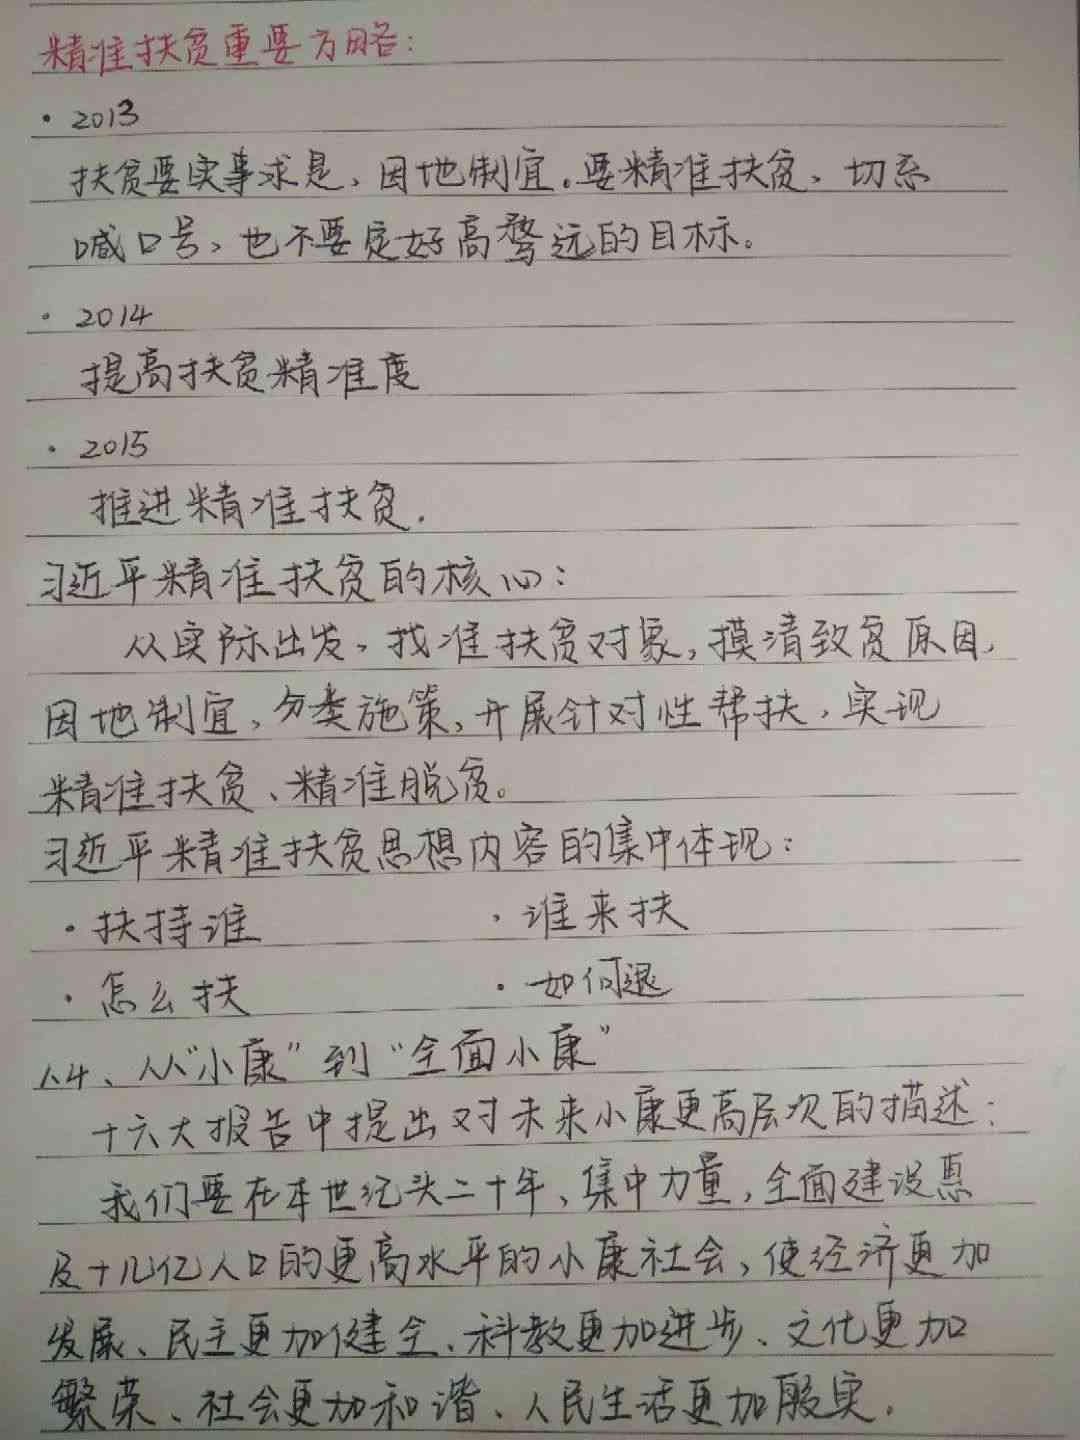 精准扶贫重要方略:
· 2013
扶贫要实事求是、因地制宜。要精准扶贫、切系
喊口号，也不要定好高骛远的目标。
· 2014
提高扶贫精准度
· 2015
推进精准扶贫.
习近平精准扶贫的核心:
从实际出发，找准扶贫对象，摸清致贫原因，
因地制宜，分类施策，开展针对性帮扶，实现
精准扶贫、精准脱贫。
习近平精准扶贫思想内容的集中体现:
· 扶持谁 · 谁来扶
· 怎么扶 · 如何退
1.4、从"小康"到"全面小康"
十六大报告中提出对未来小康更高层次的描述:
我们要在本世纪头二十年，集中力量，全面建设惠
及十几亿人口的更高水平的小康社会，使经济更加
发展、民主更加健全、科教更加进步、文化更加
繁荣、社会更加和谐、人民生活更加殷实.